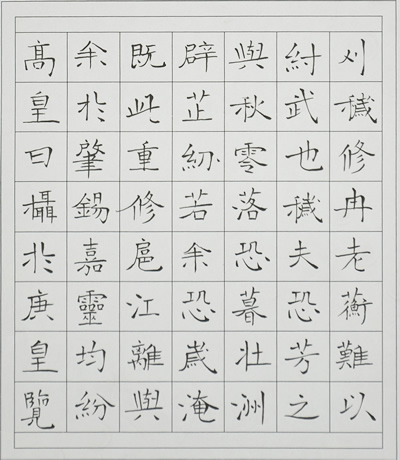 髙皇曰攝於庚皇覽
余於肇錫嘉靈均紛
既此重修扈江離與
辟芷紉若余恐歲淹
與秋零落恐暮壯洲
紂武也穢夫恐芳之
刈穢修冉老蘅難以